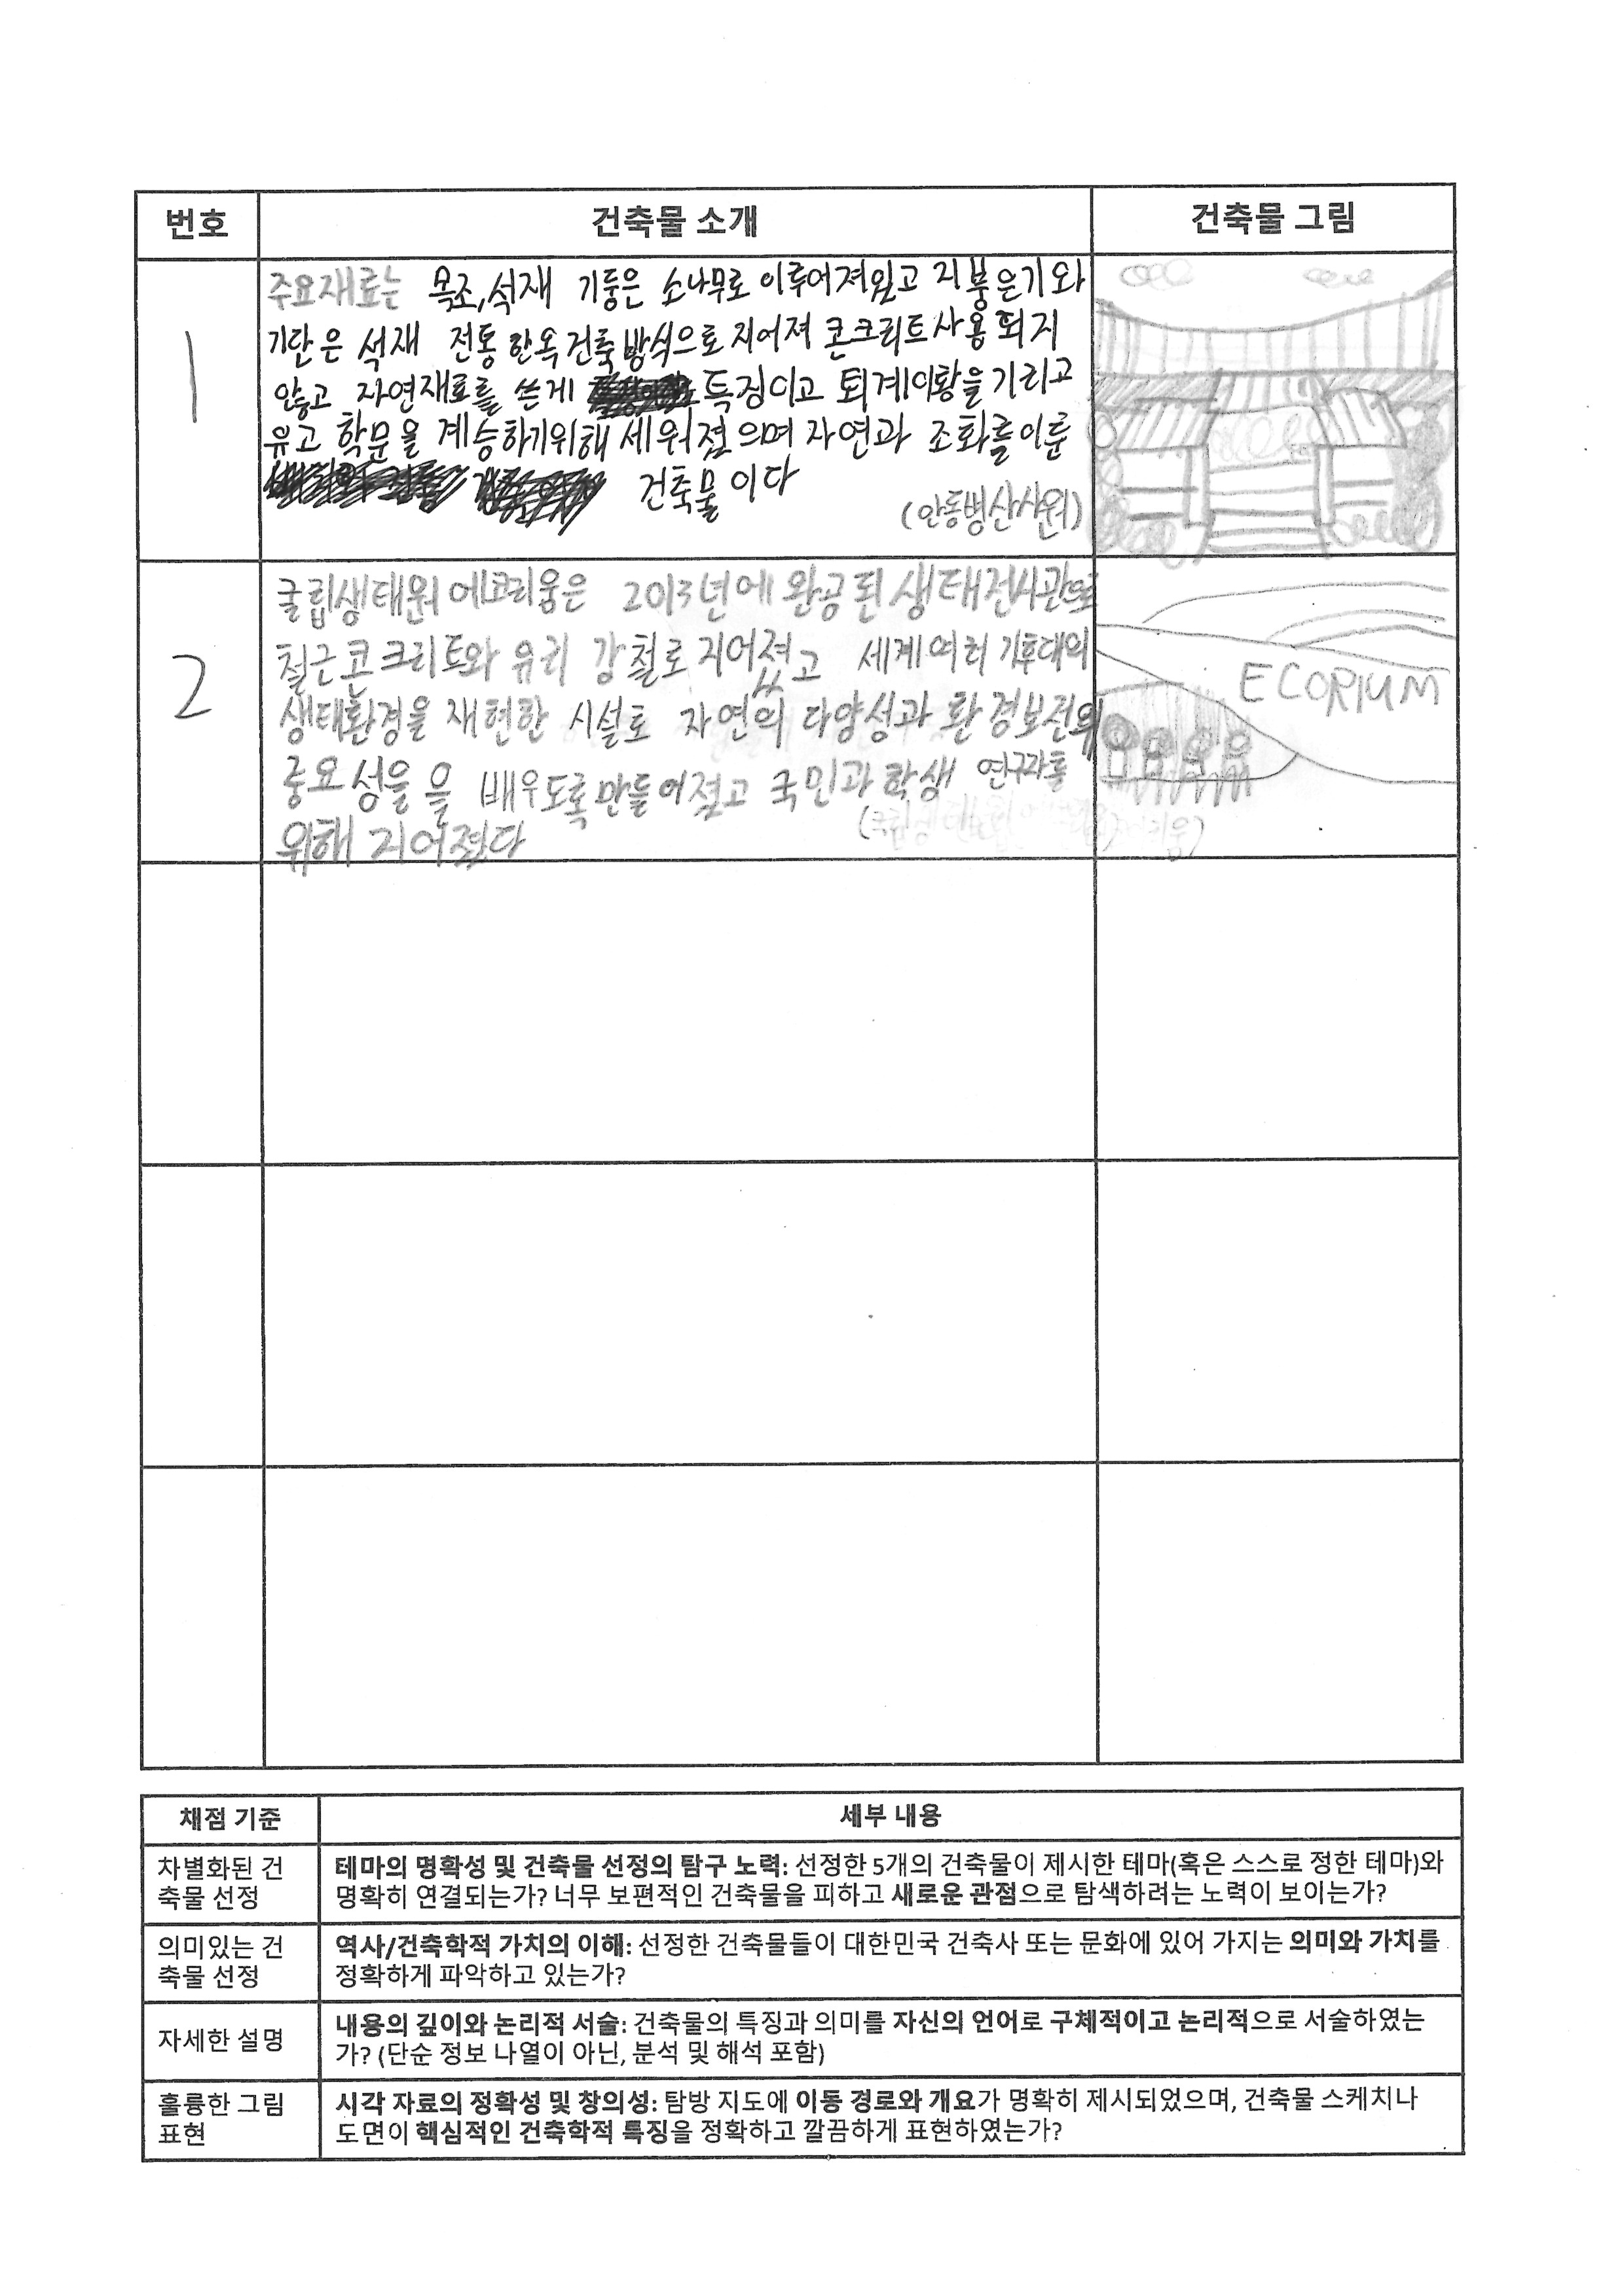 번호 건축물 소개 건축물 그림
1
주요재료는 목조,석재 기둥은 소나무로 이루어져있고 지붕은기와
기단은 석재 전통 한옥건축방식으로 지어져 콘크리트사용 되지
않놓고 자연재료를 쓴게 특징이고 퇴계이황을 기리고
유고 학문을 계승하기위해 세워졌으며 자연과 조화를이룬
건축물이다
(안동병산사원)
2
국립생태원 에코리움은 2013년에 완공된 생태전시관으로
철근콘크리트와 유리 강철로 지어졌고 세계여러 기후대의
생태환경을 재현한 시설로 자연의 다양성과 환경보전의
중요성을 을 배우도록만들어졌고 국민과 학생 연구자를
위해 지어졌다
ECORIUM
채점 기준 세부 내용
차별화된 건
축물 선정
테마의 명확성 및 건축물 선정의 탐구 노력: 선정한 5개의 건축물이 제시한 테마(혹은 스스로 정한 테마)와
명확히 연결되는가? 너무 보편적인 건축물을 피하고 새로운 관점으로 탐색하려는 노력이 보이는가?
의미있는 건
축물 선정
역사/건축학적 가치의 이해: 선정한 건축물들이 대한민국 건축사 또는 문화에 있어 가지는 의미와 가치를
정확하게 파악하고 있는가?
자세한 설명
내용의 깊이와 논리적 서술: 건축물의 특징과 의미를 자신의 언어로 구체적이고 논리적으로 서술하였는
가? (단순 정보 나열이 아닌, 분석 및 해석 포함)
훌륭한 그림
표현
시각 자료의 정확성 및 창의성: 탐방 지도에 이동 경로와 개요가 명확히 제시되었으며, 건축물 스케치나
도면이 핵심적인 건축학적 특징을 정확하고 깔끔하게 표현하였는가?